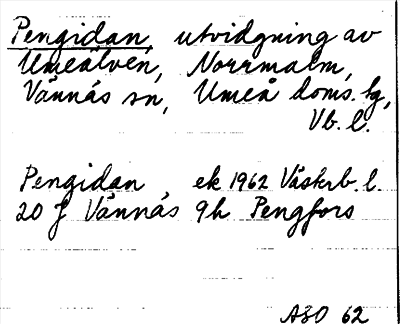 Pengidan, utvidgning av
Umeälven, Norrmalm,
Vännäs sn, Umeå doms. hg,
Vb. l.
Pengidan ek 1962 Västerb. l.
20 J Vännäs 9h Pengfors
ASO 62